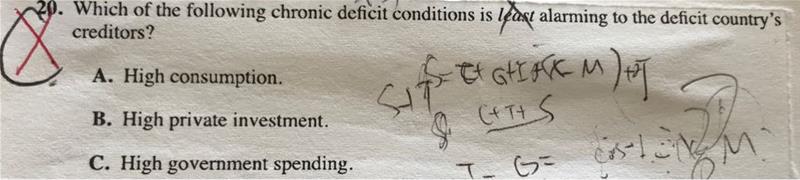 20. Which of the following chronic deficit conditions is least alarming to the deficit country's
creditors?
A. High consumption.
B. High private investment.
C+T+S
C. High government spending.
T- G=